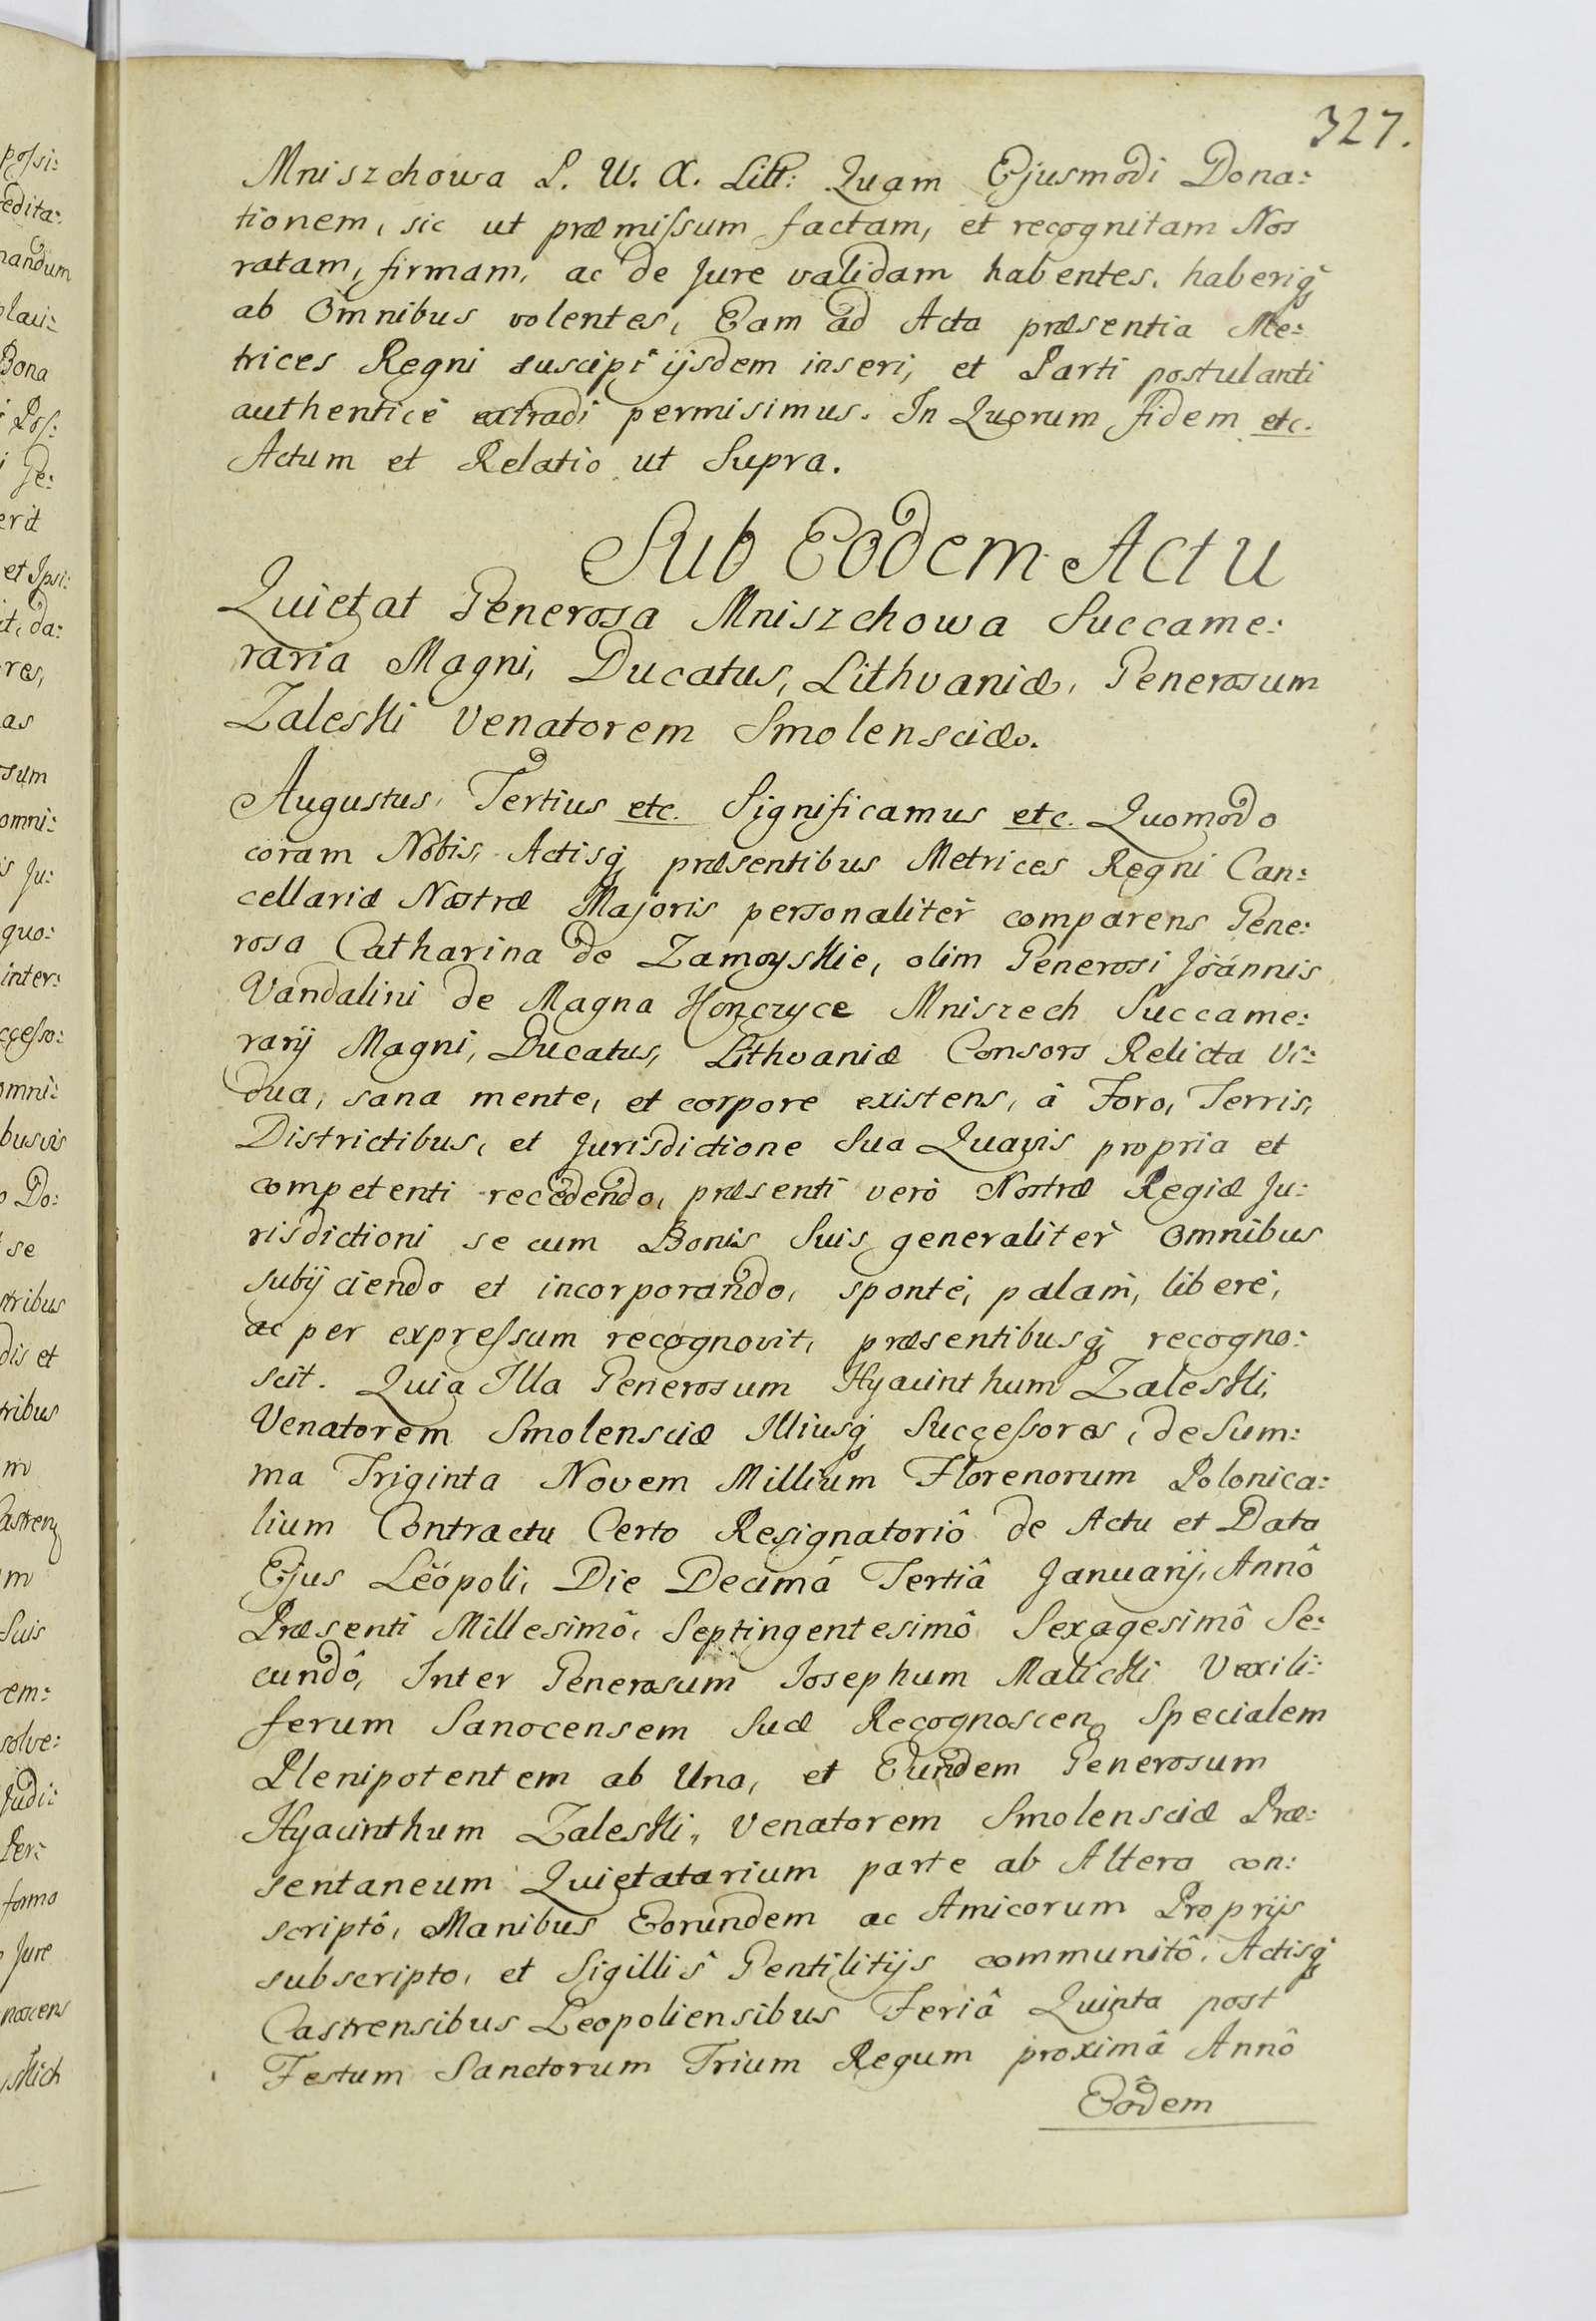 327.
Mniszchowa P. W. X. Litt: Quam Ejusmodi Dona:
tionem, sic ut præmissum factam, et recognitam Nos
ratam, firmam, ac de Jure validam habentes, haberiq
ab Omnibus volentes, Eam ad Acta præsentia Me:
trices Regni suscipi ijsdem inseri, et Parti postulanti
authenticè extradi permisimus. In Quorum fidem etc.
Actum et Relatio ut Supra.
Sub Eodem Actu
Quietat Generosa Mniszchowa Succame:
raria Magni, Ducatus, Lithvaniæ, Generosum
Zaleski Venatorem Smolensciæ.
Augustus Tertius etc. Significamus etc. Quomodo
coram Nobis, Actisq præsentibus Metrices Regni Can:
cellariæ Nostræ Majoris personaliter comparens Gene:
rosa Catharina de Zamoyskie, olim Generosi Joannis
Vandalini de Magna Konczyce Mniszech Succame:
rarij Magni, Ducatus, Lithvaniæ Consors Relicta Vi:
dua, sana mente, et corpore existens, â Foro, Terris,
Districtibus, et Jurisdictione Sua Quavis propria et
competenti recedendo, præsenti verò Nostræ Regiæ Ju:
risdictioni se cum Bonis Suis generaliter Omnibus
subijciendo et incorporando, spontè, palam, liberè,
ac per expressum recognovit, præsentibusq recogno:
scit. Quia Illa Generosum Hyacinthum Zaleski,
Venatorem Smolensciæ Illiusq Successores, de Sum:
ma Triginta Novem Millium Florenorum Polonica:
lium Contractu Certo Resignatoriô de Actu et Data
Ejus Leopoli, Die Decimâ Tertiâ Januarij, Annô
Præsenti Millesimô, Septingentesimô Sexagesimô Se:
cundô, Inter Generosum Josephum Malicki Vexili:
ferum Sanocensem Suæ Recognoscen Specialem
Plenipotentem ab Una, et Eundem Generosum
Hyacinthum Zaleski, Venatorem Smolensciæ Præ:
sentaneum Quietatarium parte ab Altera con:
scriptô, Manibus Eorundem ac Amicorum Proprijs
subscripto, et Sigillis Gentilitijs communitô, Actisq
Castrensibus Leopoliensibus Feriâ Quinta post
Festum Sanctorum Trium Regum proximâ Annô
Eôdem